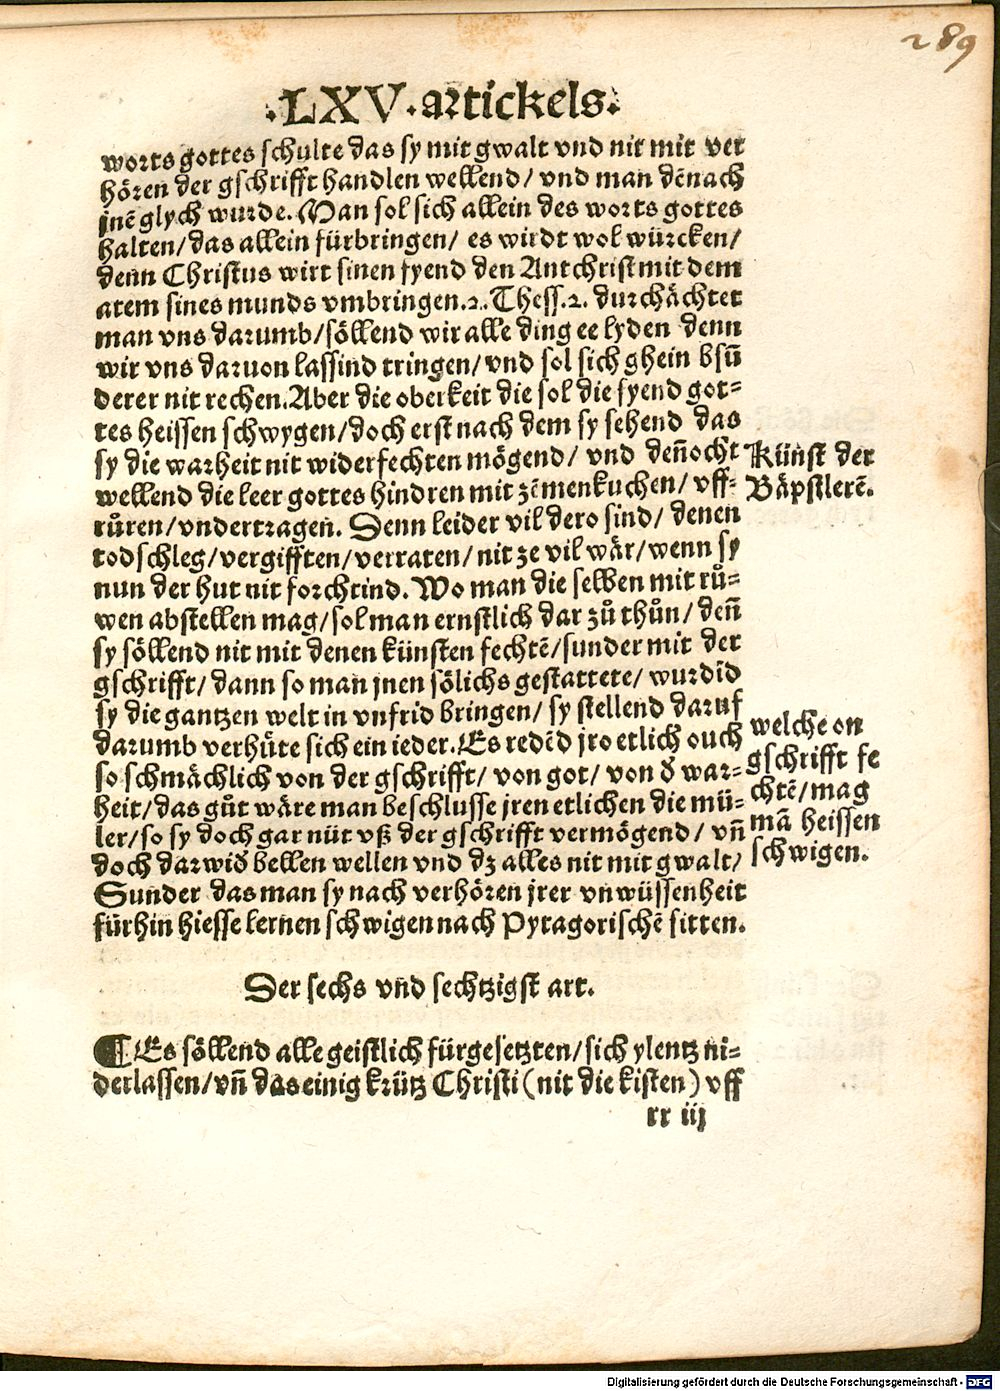 289
.LXV. artickels.
worts gottes schulte das sy mit gwalt vnd nit mit ver
hören der gschrifft handlen wellend/ vnd man dēnach
jnē glych wurde. Man sol sich allein des worts gottes
halten/ das allein fürbringen/ es wirdt wol würcken/
denn Christus wirt sinen fyend den Antchrist mit dem
atem sines munds vmbringen.2. Thess.2. durchächtet
man vns darumb/ söllend wir alle ding ee lyden denn
wir vns daruon lassind tringen/ vnd sol sich ghein bsū
derer nit rechen. Aber die oberkeit die sol die fyend got=
tes heissen schwygen/ doch erst nach dem sy sehend das
sy die warheit nit widerfechten mögend/ vnd deñocht
wellend die leer gottes hindren mit zēmenkuchen/ vff=
růren/ vndertragen. Denn leider vil dero sind/ denen
todschleg/ vergifften/ verraten/ nit ze vil wär/ wenn sy
nun der hut nit forchtind. Wo man die selben mit rů=
wen abstellen mag/ sol man ernstlich dar zů thůn/ deñ
sy söllend nit mit denen künsten fechtē/ sunder mit der
gschrifft/ dann so man jnen sölichs gestattete/ wurdid
sy die gantzen welt in vnfrid bringen/ sy stellend daruf
darumb verhüte sich ein ieder. Es redēd jro etlich ouch
so schmächlich von der gschrifft/ von got/ von ď war=
heit/ das gůt wäre man beschlusse jren etlichen die mü=
ler/ so sy doch gar nüt vß der gschrifft vermögend/ vñ
doch darwiď bellen wellen vnd dz alles nit mit gwalt/
Sunder das man sy nach verhören jrer vnwüssenheit
fürhin hiesse lernen schwigen nach Pytagorischē sitten.
Künst der
Bäpstlerē.
welche on
gschrifft fe
chtē/ mag
mā heissen
schwigen.
Der sechs vnd sechtzigst art.
¶ Es söllend alle geistlich fürgesetzten/ sich ylentz ni=
derlassen/ vñ das einig krütz Christi (nit die kisten) vff
rr iij
Digitalisierung gefördert durch die Deutsche Forschungsgemeinschaft - DFG